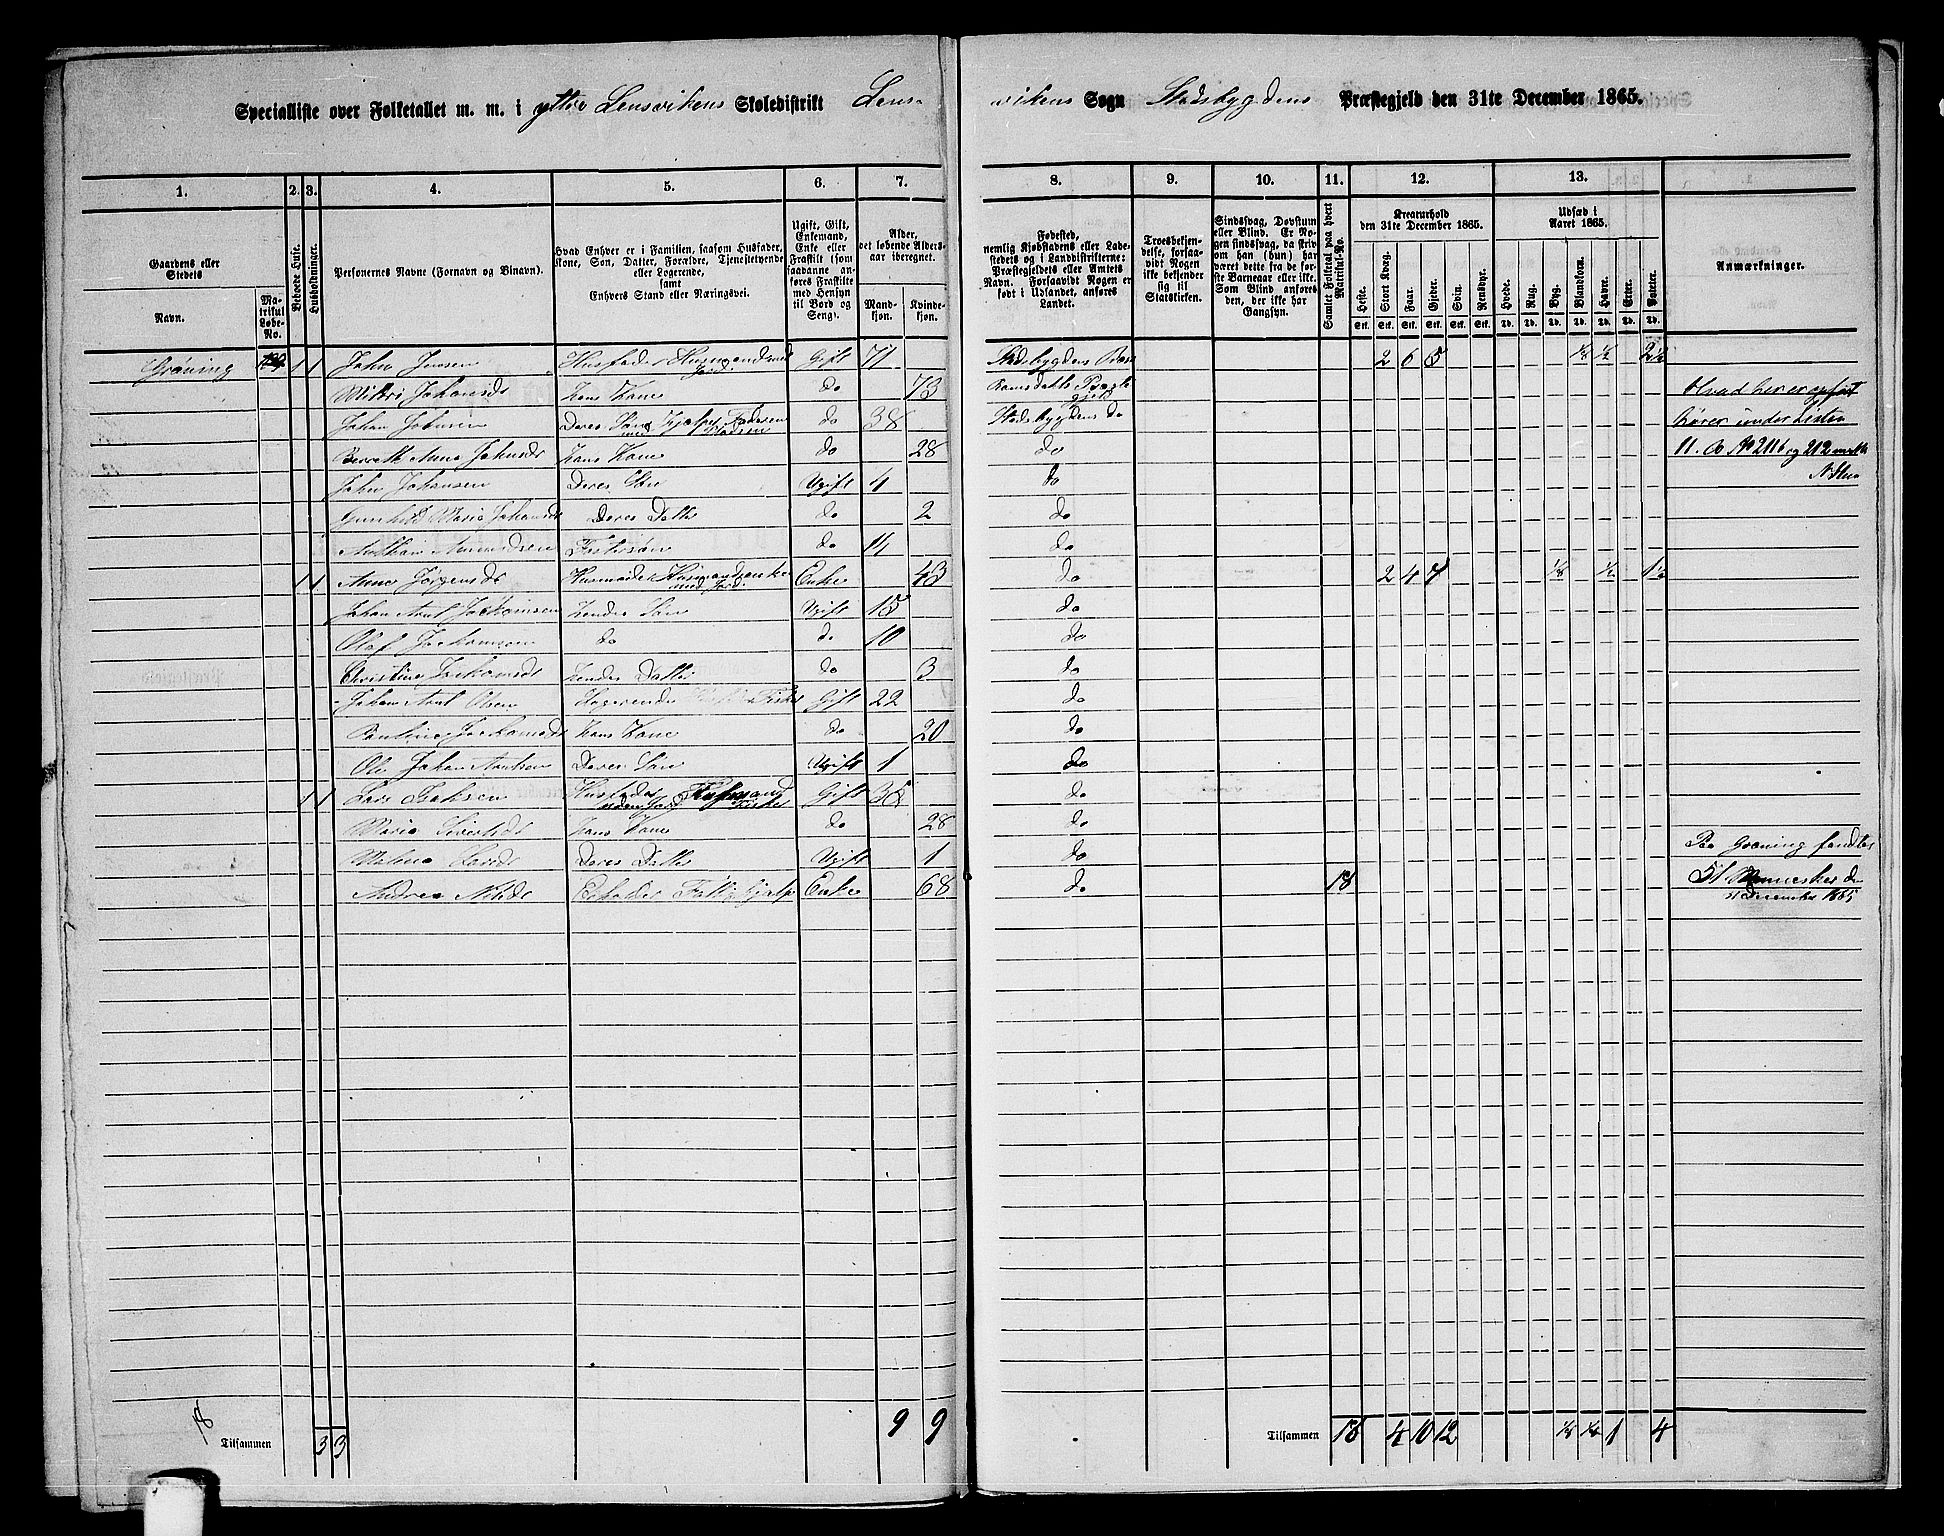 Specialliste over Folketallet m. m. i yttre Lensvikens Skoledistrikt Lens-
vikens Sogn Stadsbygdens Præstegjeld den 31te December 1865.
1. 2. 3. 4. 5. 6. 7.
8. 9. 10. 11. 12. 13.
Gaardens eller Stedets
Navn.
Matrikul Løbe-No.
Beboede Huse.
Husholdninger.
Personernes Navne (Fornavn og Binavn).
Hvad Enhver er i Familien, saasom Husfader, Kone, Søn, Datter, Forældre, Tjenestetyende eller Logerende samt Enhvers Stand eller Næringsvei.
Ugift, Gift, Enkemand, Enke eller Fraskilt (som saadanne anføres Fraskilte med Hensyn til Bord og Seng).
Alder, det løbende Alders-aar iberegnet.
Mandkjøn. Kvindekjøn.
Fødested, nemlig Kjøbstadens eller Ladestedets og i Landdistrikterne: Præstegjeldets eller Amtets Navn. Forsaavidt Nogen er født i Udlandet, anføres Landet.
Troesbekjendelse, forsaavidt Nogen ikke bekjender sig til Statskirken.
Sindssvag, Døvstum eller Blind. Er Nogen sindssvag, da skriv om han (hun) har været dette fra de første Barneaar eller ikke. Som Blind anføres den, der ikke har Gangsyn.
Samlet Folketal paa hvert Matrikul-No.
Kreaturhold den 31te December 1865.
Heste. Stort Kvæg. Faar. Gjeder. Svin. Rensdyr.
Udsæd i Aaret 1865.
Hvede. Rug. Byg. Blandkorn. Havre. Erter. Poteter.
Anmærkninger.
Grøning 1 1 John Jensen Husfader Husmand med Jord Gift 71 Stadsbygdens 2 6 5 ¼ ½ 2½
Johansdr hans Kone do 73 Romsdals
Johan Johnsen Deres Søn do 38 Stadsbygdens do
Berreth Anna Johnsdr hans Kone do 28 do
John Johansen Deres Søn Ugift 4 do
Gunhild Maria Johansdr Deres Datter do 2 do
Amundsen Fostersøn do 14 do
1 1 Anne Jørgensdr Husmoder Husmandsenke med Jord Enke 43 do 2 4 7 ⅛ ½ 1½
Johan Arnt Joakimsen hendes Søn Ugift 15 do
Olaf Joakimsen do do 10 do
Christine Joakimsdr hendes Datter do 3 do
Johan Arnt Olsen Logerende Fisker Gift 22 do
Pauline Joakimsdr hans Kone do 20 do
Ole Johan Arntsen Deres Søn Ugift 1 do
1 1 Lars Husfader Husmand uden Jord Fisker Gift 35 do
Maria Sivertsdr hans Kone do 28 do
Larsdr Deres Datter Ugift 1 do
Andrea Nilsdr Enke 68 do 18
Hvad her er opført
hører under Listen
11. No 211b og 212
Paa Grøning fandtes
51 Mennesker den
31 December 1865
18
Tilsammen 3 3 9 9
Tilsammen 18 4 10 12 ⅛ ¼ 1 4